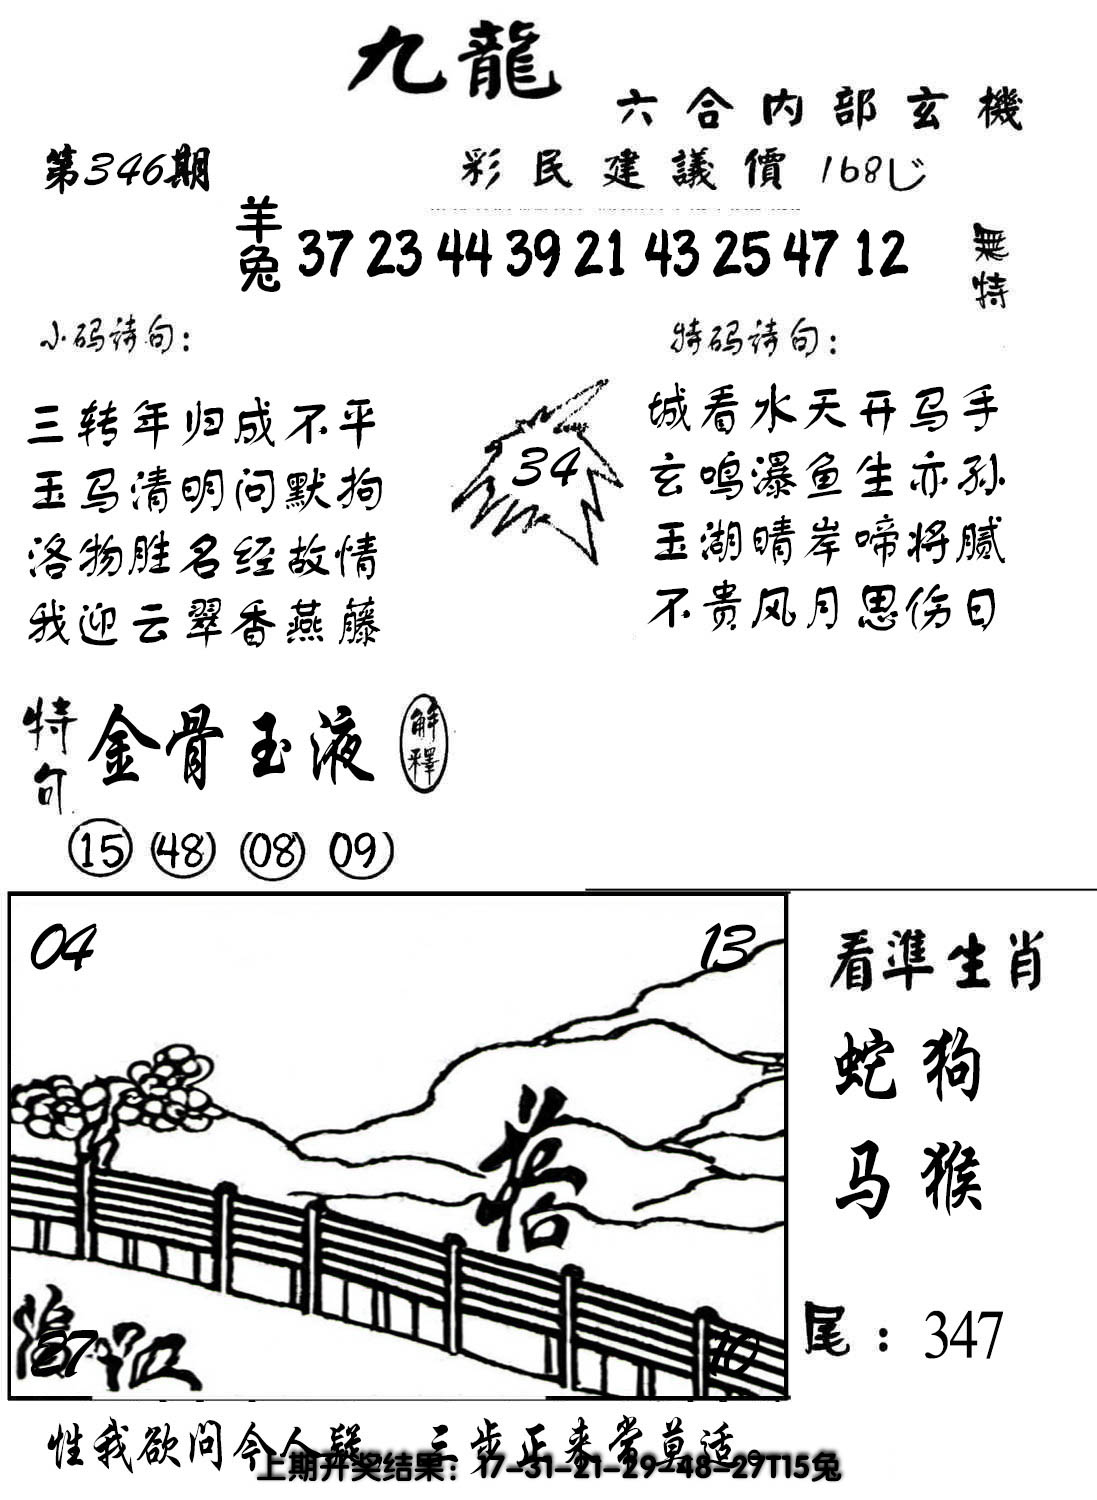 九龍
六合内部玄機
第346期
彩民建議價 168
羊兔 37 23 44 39 21 43 25 47 12
無特
小码诗句：
三转年归成不平
玉马清明问默拘
洛物胜名经故情
我迎云翠香燕藤
34
特码诗句：
城看水天开马手
玄鸣瀑鱼生亦孙
玉湖晴岸啼将腻
不贵风月思伤日
特句 金骨玉液 解釋
15 48 08 09
04 13
27 10
看準生肖
蛇狗
马猴
尾：347
性我欲问今人疑 三步正来常莫适。
上期开奖结果：17-31-21-29-48-27T15兔